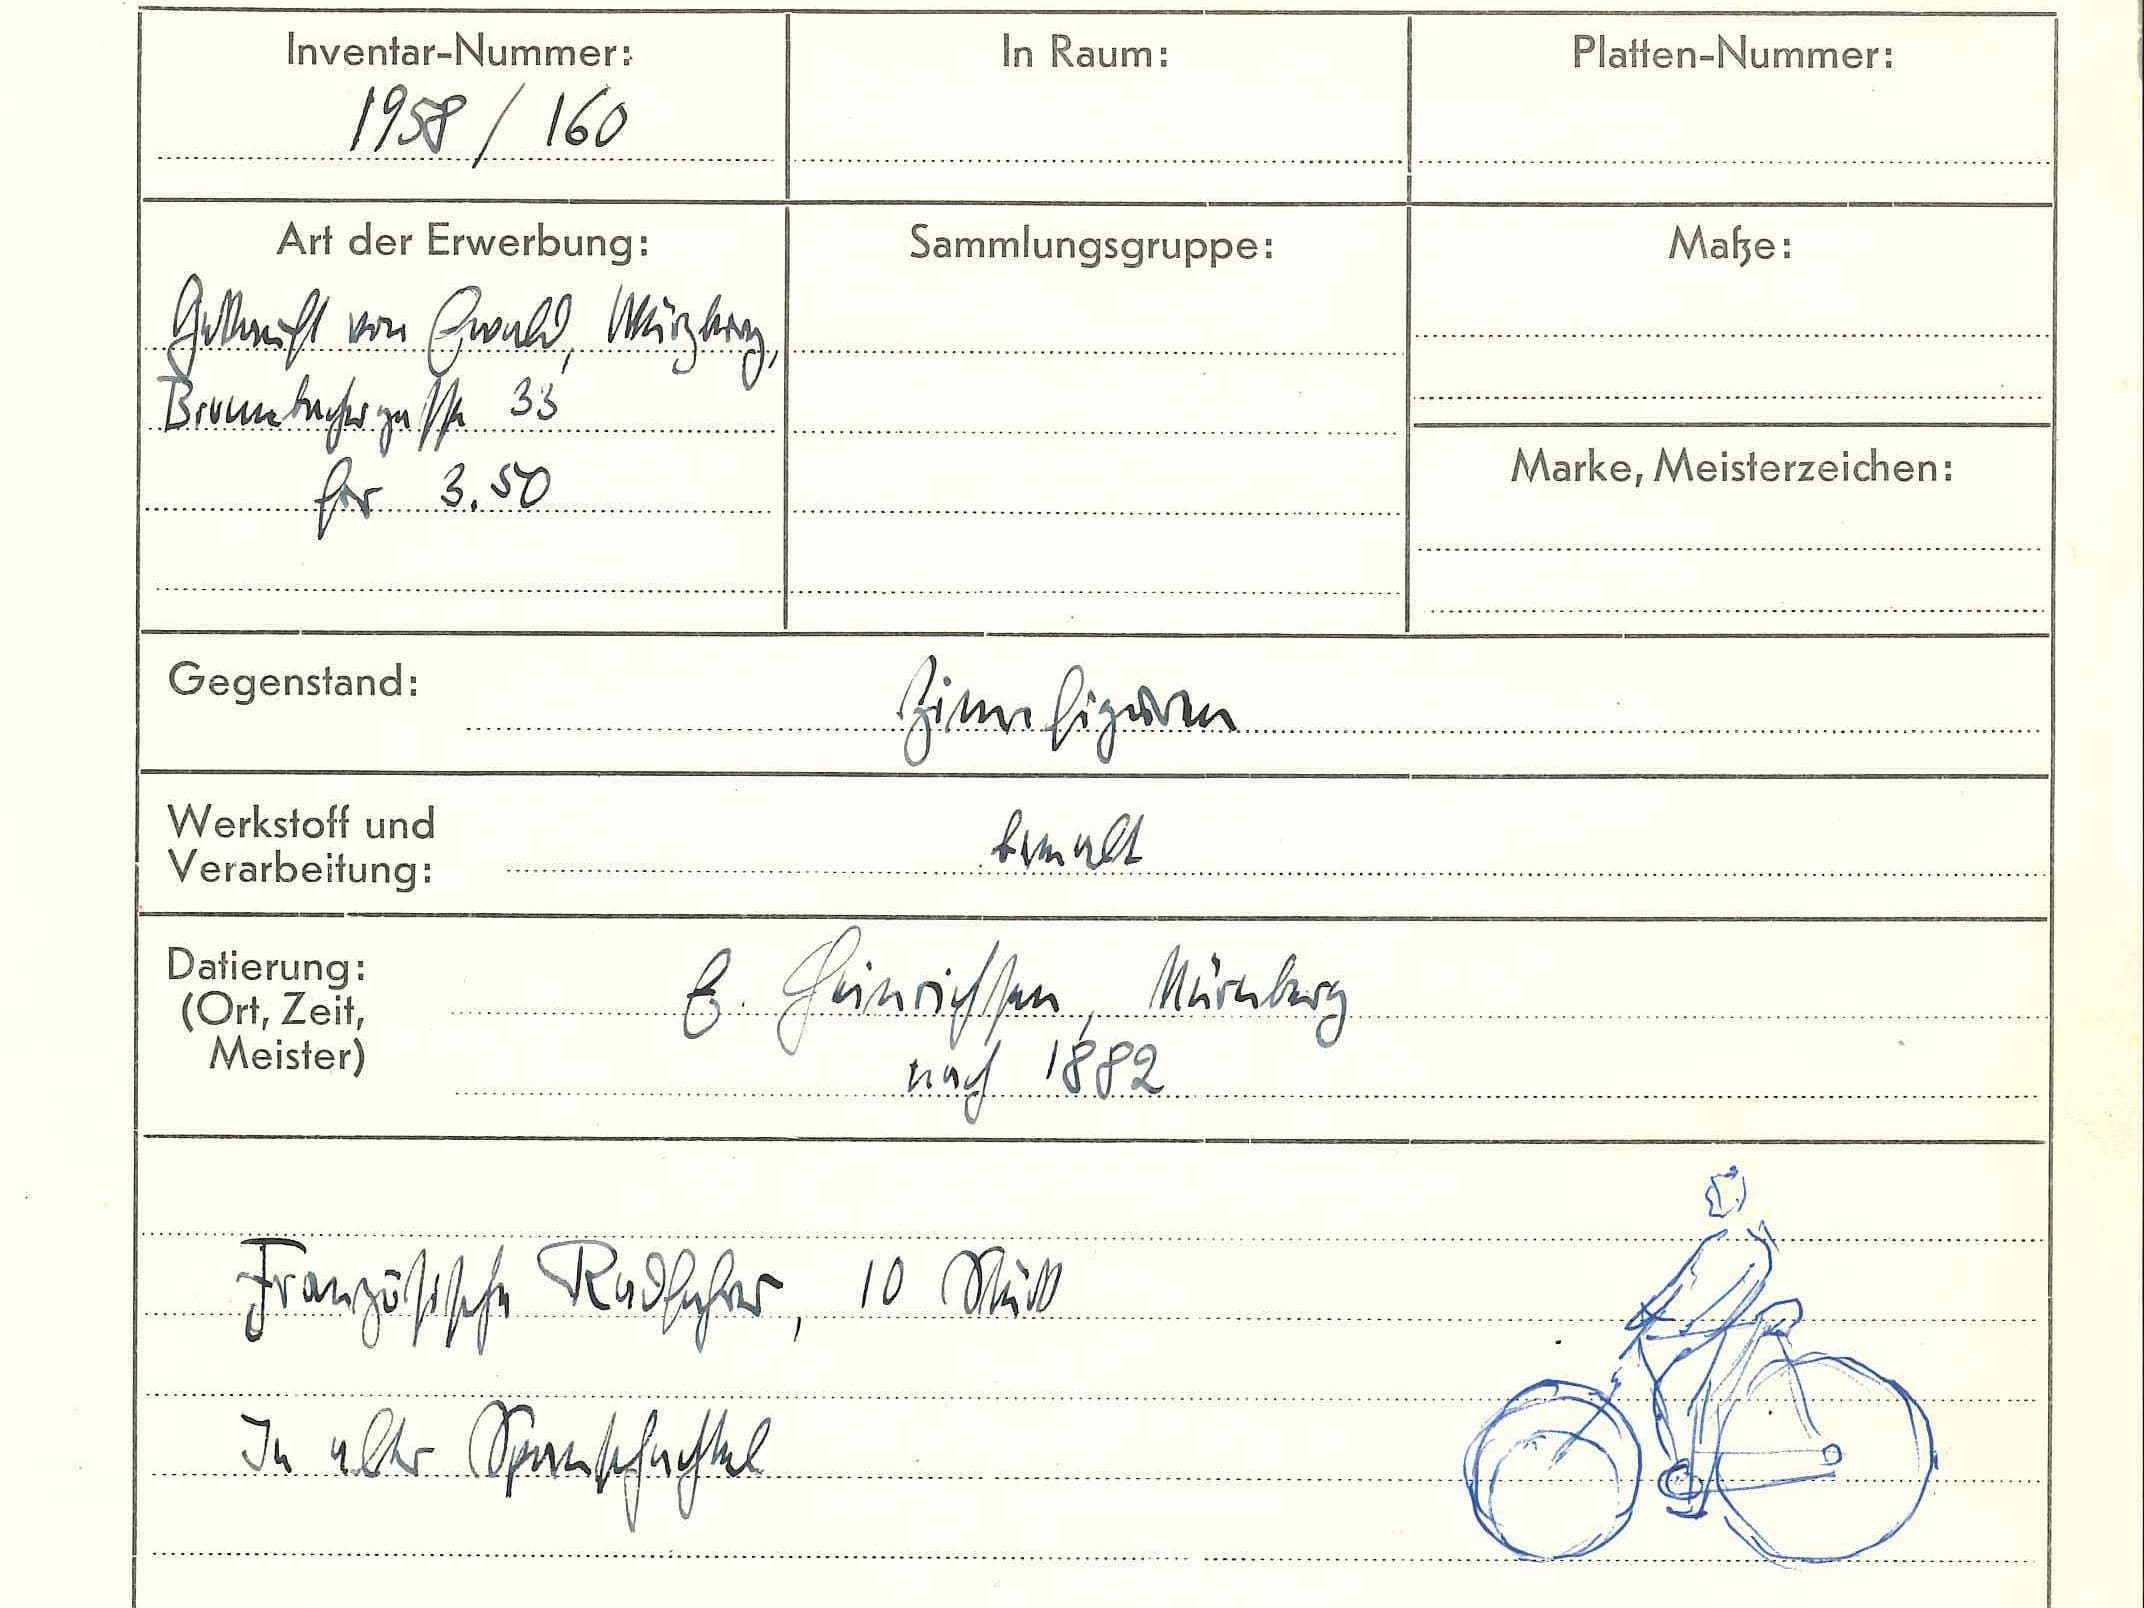 Inventar-Nummer:
1958 / 160
In Raum:
Platten-Nummer:
Art der Erwerbung:
Gekauft von Ewald, Würzburg,
33
für 3.50
Sammlungsgruppe:
Maße:
Marke, Meisterzeichen:
Gegenstand:
Zinnfiguren
Werkstoff und
Verarbeitung:
bemalt
Datierung:
(Ort, Zeit,
Meister)
E. Heinrichsen, Nürnberg
nach 1882
Französische Radfahrer, 10 Stück
In alter Spanschachtel